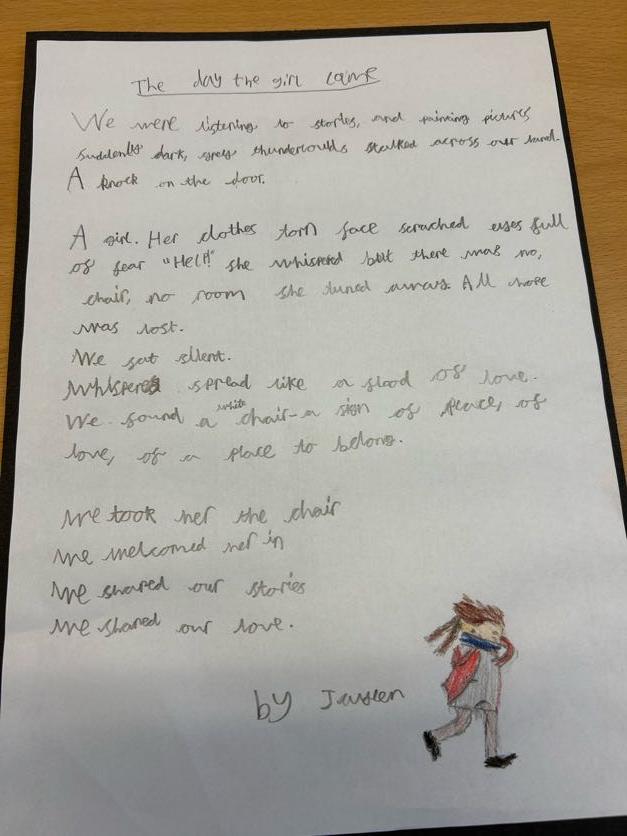 The day the girl came
We were listening to stories, and painting pictures
Suddenly dark, grey thunderclouds stalked across our land.
A knock on the door.
A girl. Her clothes torn face scrached eyes full
of fear "Help!" she whisperd but there was no,
chair, no room she tuned away. All hope
was lost.
We sat silent.
Whispers spread like a flood of love.
We found a white chair-a sign of peace, of
love, of a place to belong.
We took her the chair
We welcomed her in
We shared our stories
We shared our love.
by